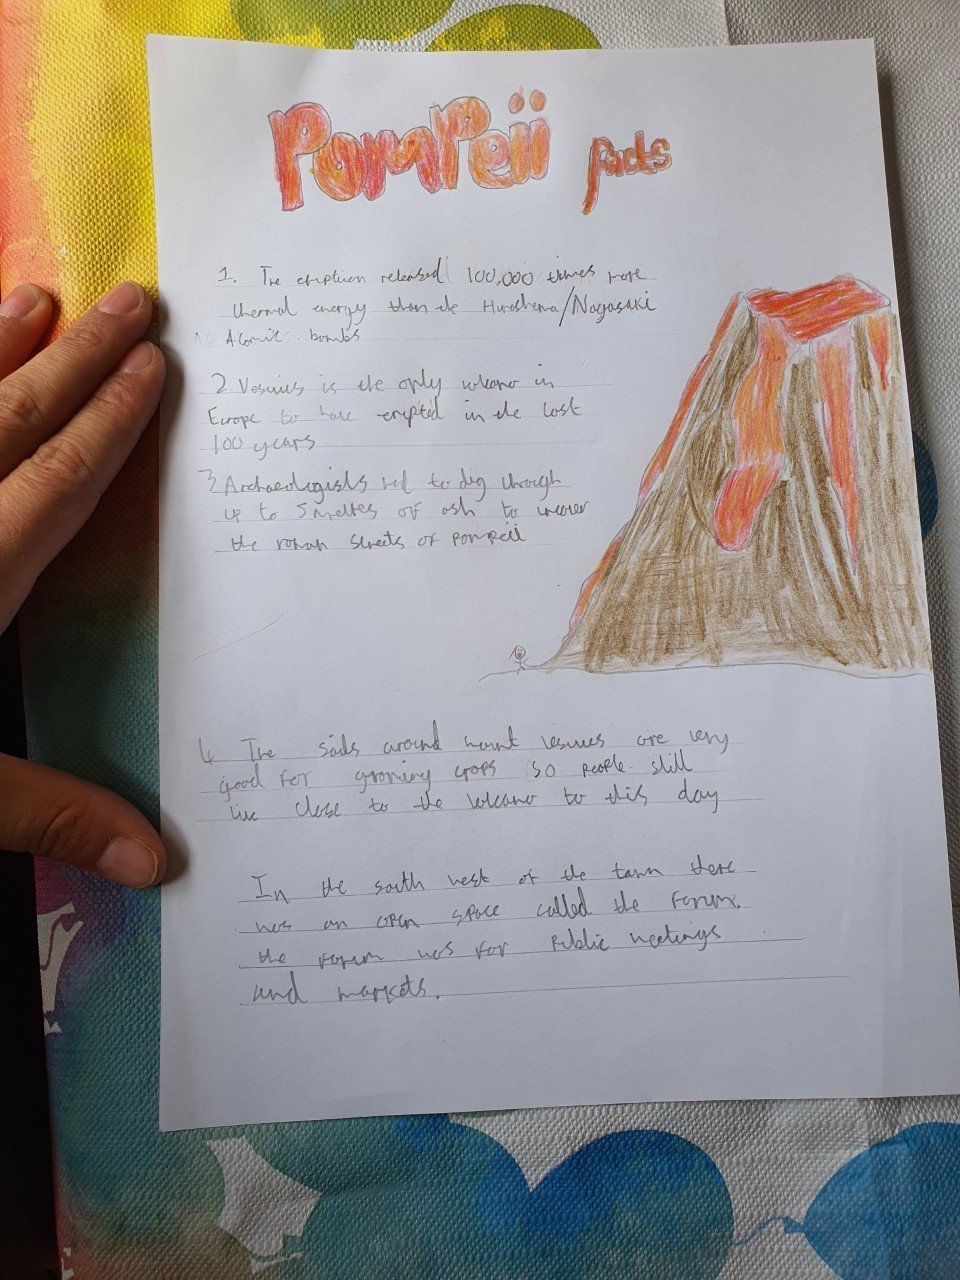 Pompeii facts
1. The eruption released 100,000 times more
thermal energy than the Hiroshema/Nagasaki
Atomic . bombs
2. Vesuvius is the only volcano in
Europe to have erupted in the last
100 years
3 Archaeologists had to dig through
up to 5 meltes of ash to uncover
the roman streets of pompeii
4 The soils around mount vesuves are very
good for growing crops so people still
live close to the volcano to this day
In the south west of the town there
was an open space called the forum.
the forum was for public meetings
and markets.